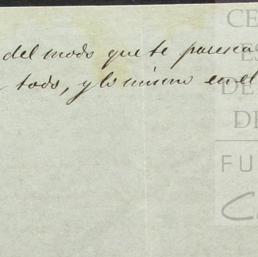 del modo que te paresca
todo, y lo mismo en el
CE
ES
DE
DE
FU